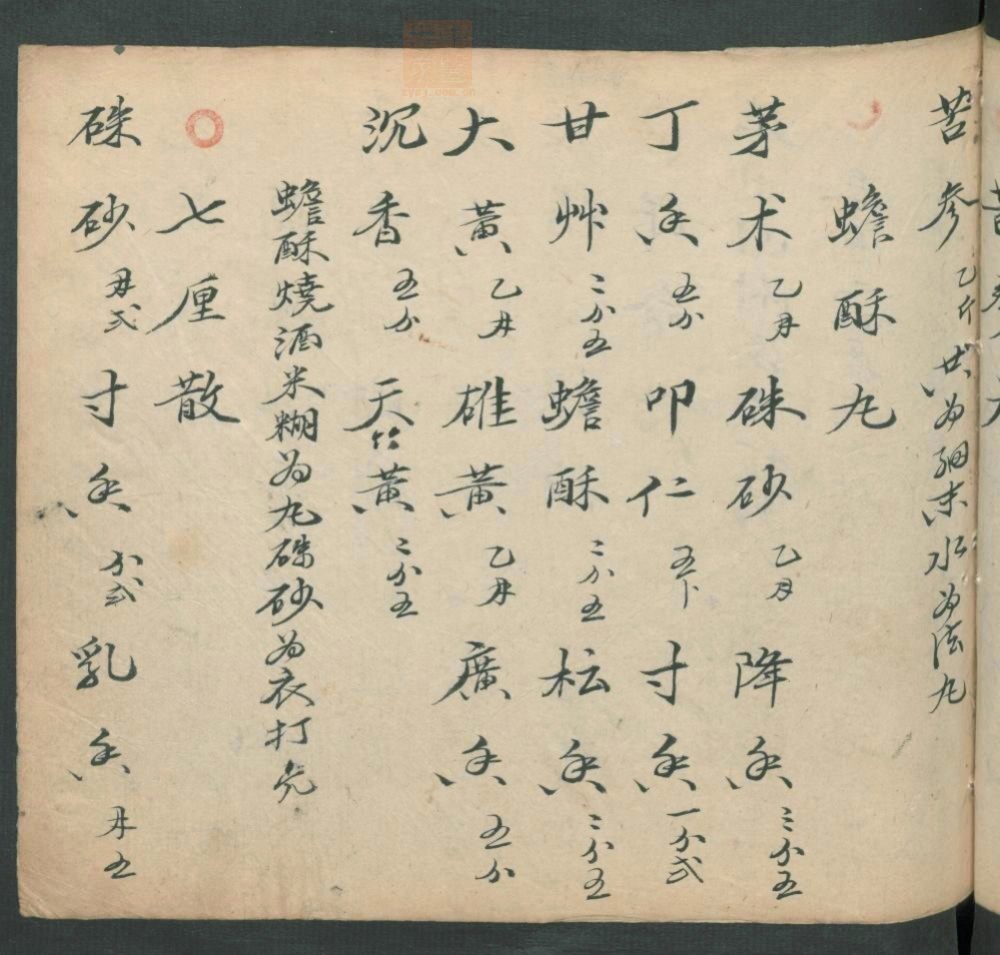 苦参 乙斤 共为細末水为法丸
蟾酥丸
茅术 乙月 硃砂 乙月 降香 二分五
丁香 五分 叩仁 五下 寸香 一分弍
甘艸 二分五 蟾酥 二分五 枟香 二分五
大黄 乙月 雄黄 乙月 廣香 五分
沉香 五分 天竺黄 二分五
蟾酥燒酒米糊为丸硃砂为衣打光
七厘散
硃砂 弍 寸香 分弍 乳香 五